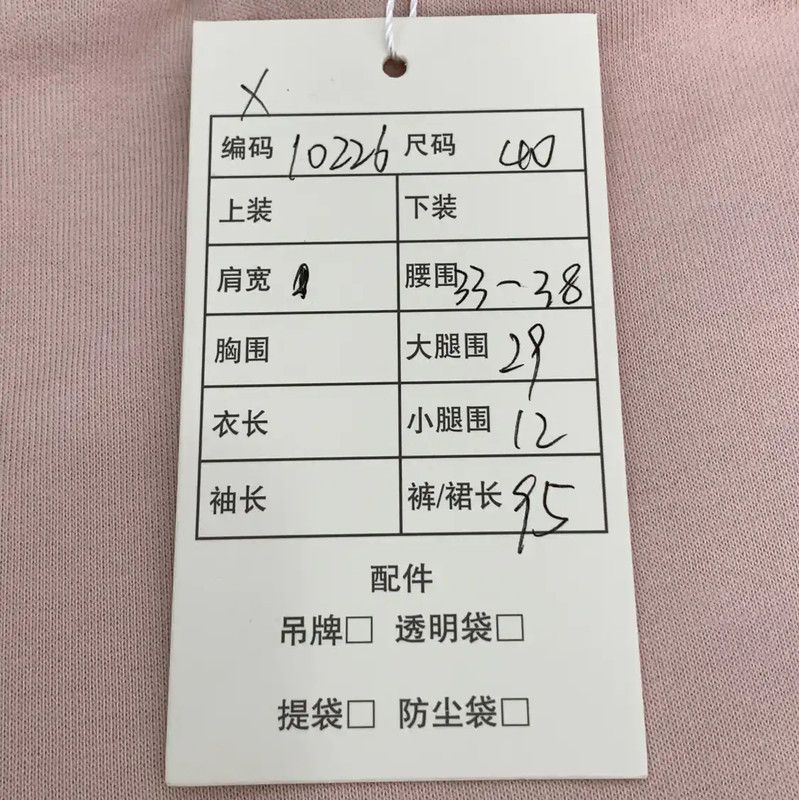 X
编码 10226 尺码 40
上装 下装
肩宽 腰围 33-38
胸围 大腿围 29
衣长 小腿围 12
袖长 裤/裙长 95
配件
吊牌□ 透明袋□
提袋□ 防尘袋□